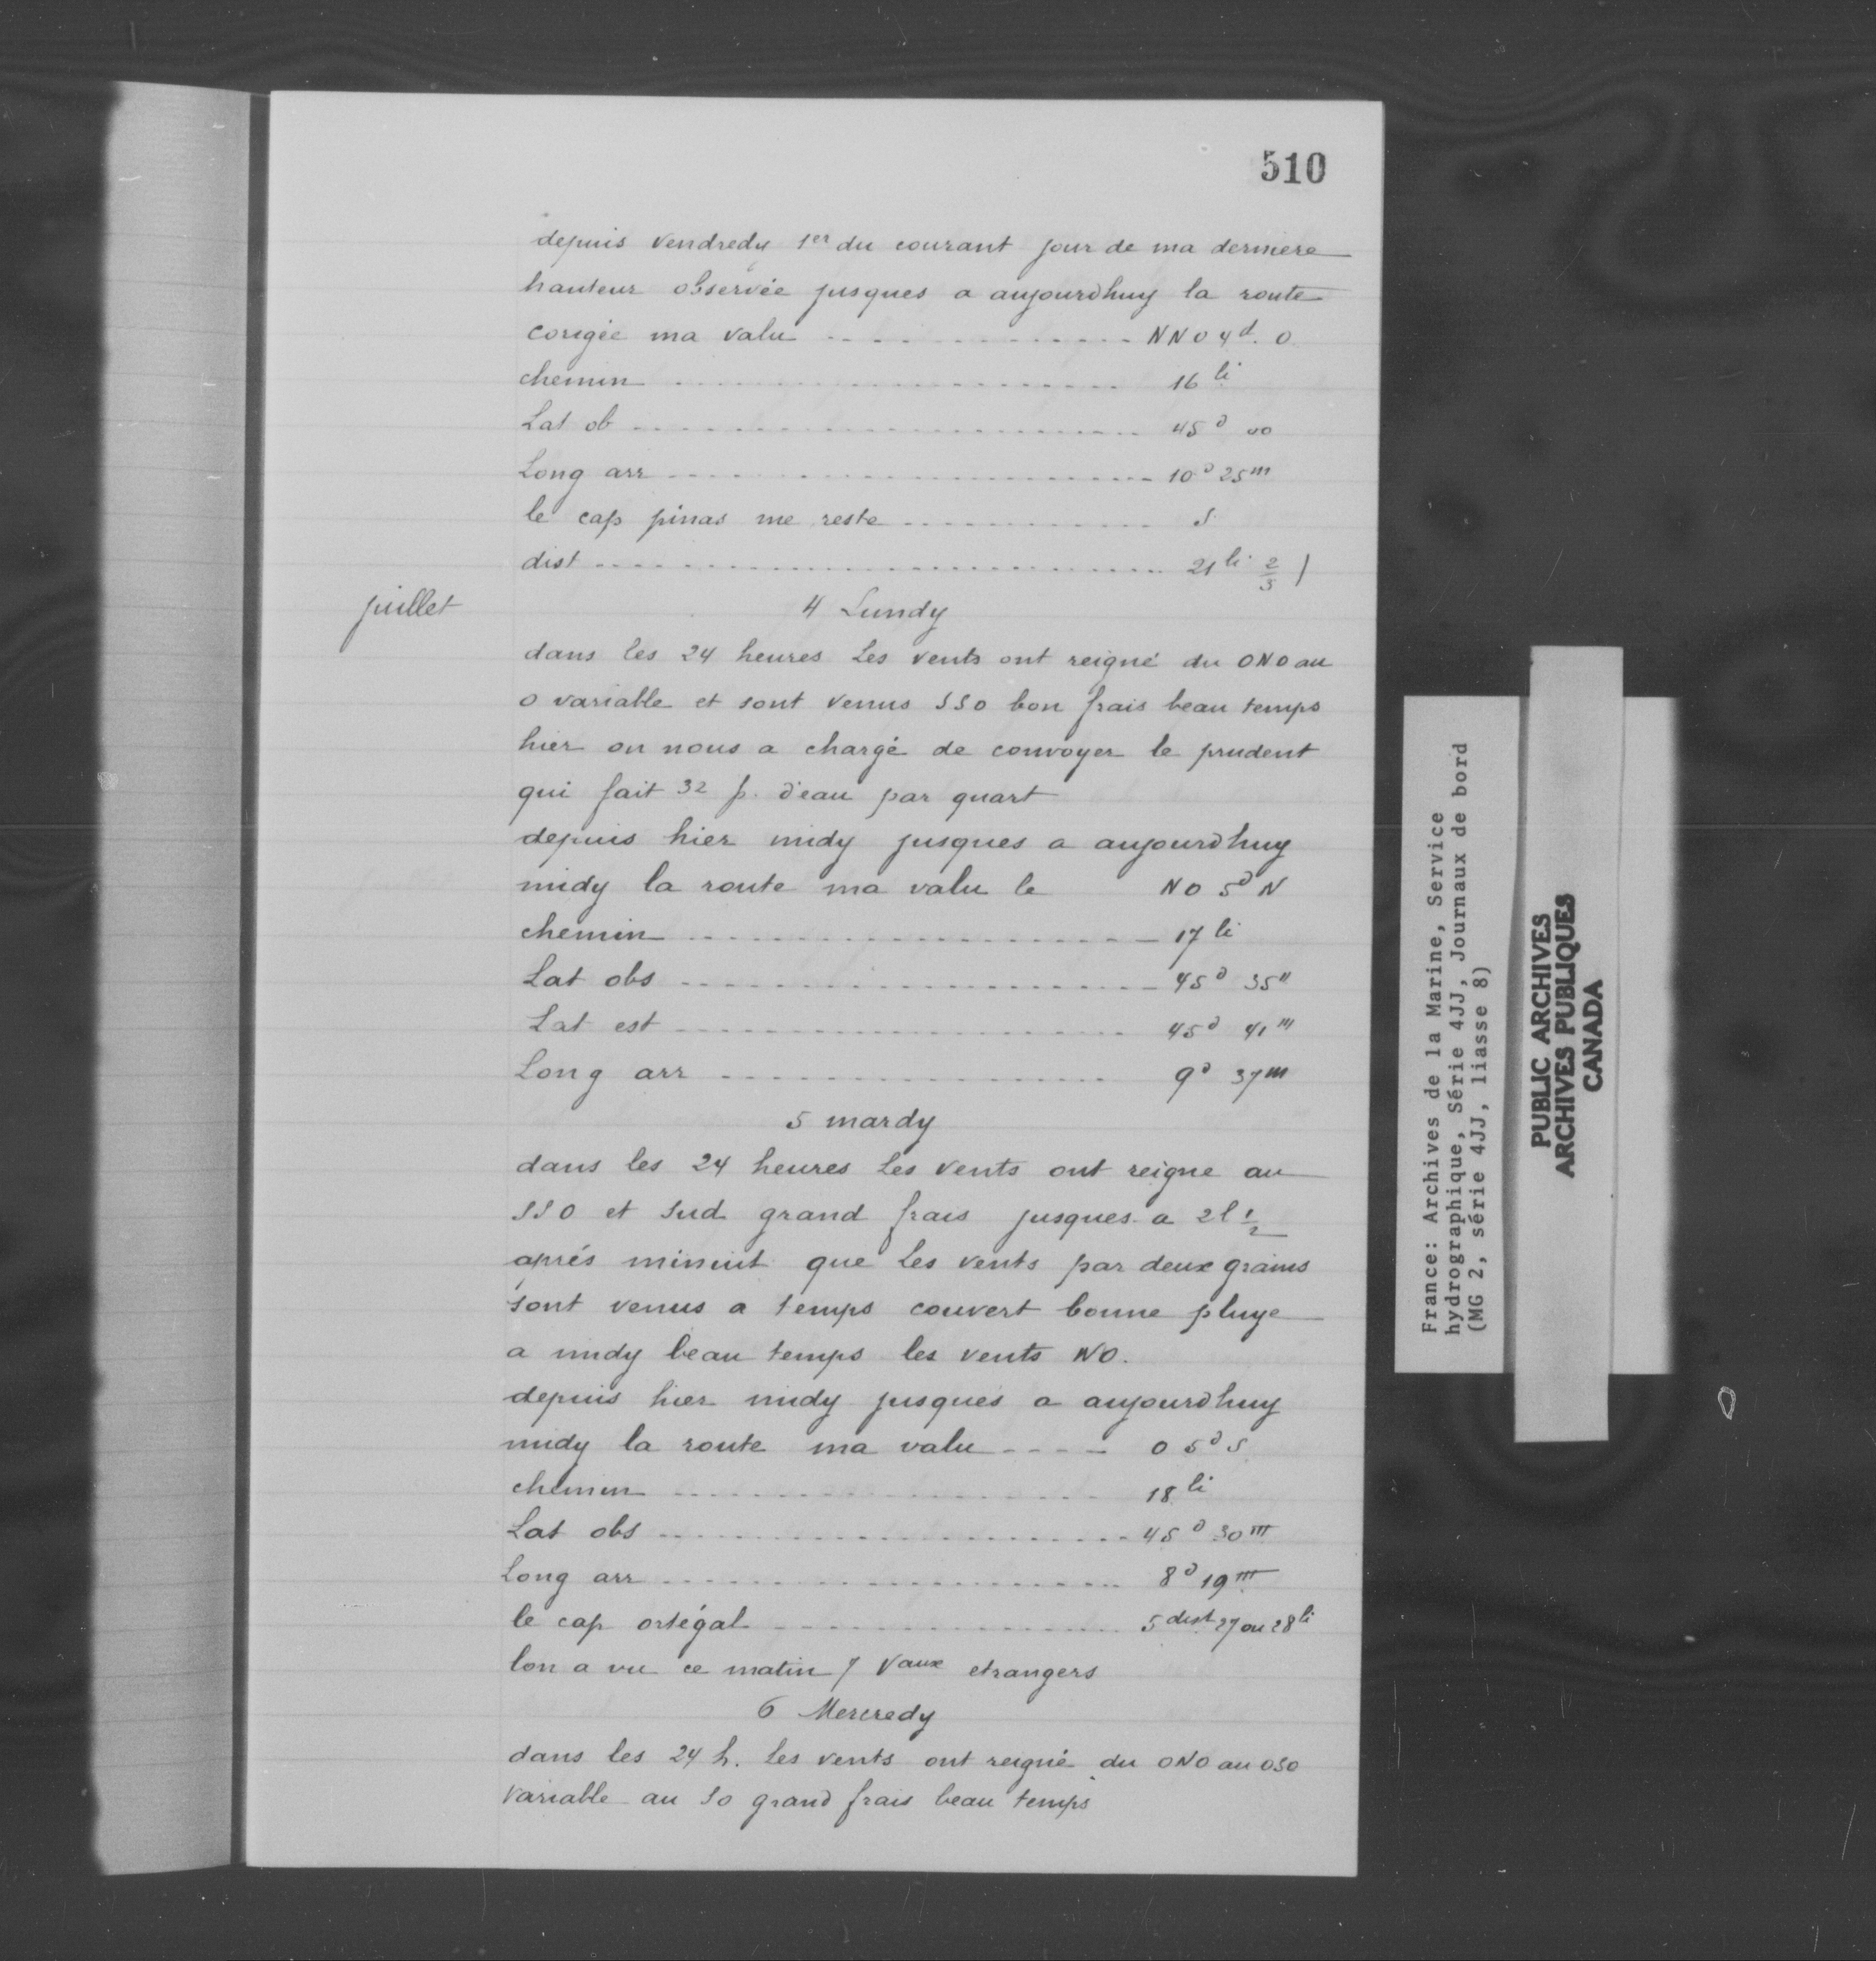 510
depuis vendredy 1er du courant jour de ma derniere
hauteur observée jusques a aujourdhuy la route
corigée ma valu ............... NNO 4d. O
chemin ............... 16 li
Lat ob ............... 45d 00
Long arr ............... 10d 25m
le cap pinas me reste ............... S
dist ............... 21 li 2/3 )
juillet
4 Lundy
dans les 24 heures Les vents ont reigné du ONO au
O variable et sont venus SSO bon frais beau temps
hier on nous a chargé de convoyer le prudent
qui fait 32 p. d'eau par quart
depuis hier midy jusques a aujourdhuy
midy la route ma valu le NO 5d N
chemin ............... 17 li
Lat obs ............... 45d 35"
Lat est ............... 45d 41m
Long arr ............... 9d 37m
5 mardy
dans les 24 heures Les vents ont reigne au
SSO et Sud grand frais jusques a 2l 1/2
aprés minuit que Les vents par deux grains
sont venus a temps couvert bonne pluye
a midy beau temps les vents NO.
depuis hier midy jusques a aujourdhuy
midy la route ma valu .... O 5d S
chemin ............... 18 li
Lat obs ............... 45d 30m
Long arr ............... 8d 19m
le cap ortégal ............... 5 dist 27 ou 28 li
lon a vu ce matin 7 Vaux etrangers
6 Mercredy
dans les 24 h. Les vents ont reigné du ONO au OSO
variable au SO grand frais beau temps
France: Archives de la Marine, Service
hydrographique, Série 4JJ, Journaux de bord
(MG 2, série 4JJ, liasse 8)
PUBLIC ARCHIVES
ARCHIVES PUBLIQUES
CANADA